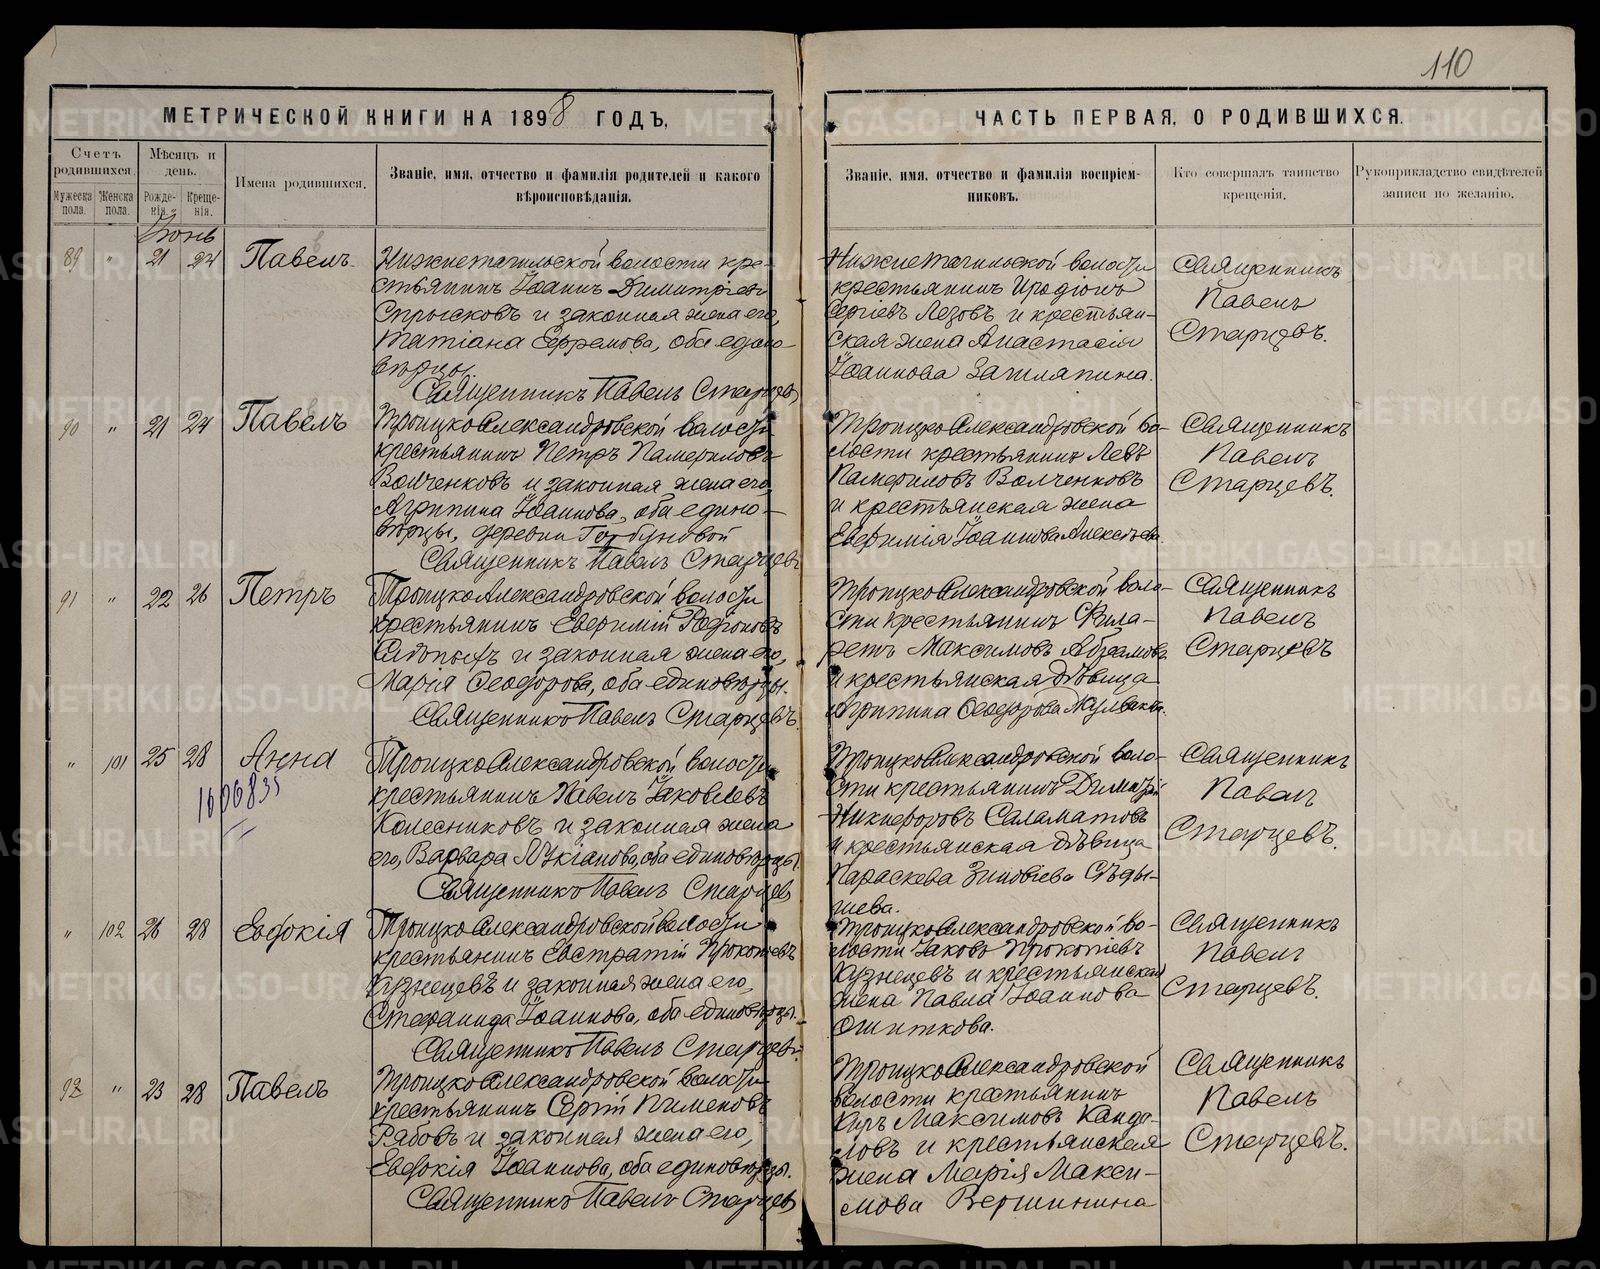 110
МЕТРИЧЕСКОЙ КНИГИ НА 1898 ГОДЪ,
ЧАСТЬ ПЕРВАЯ, О РОДИВШИХСЯ.
Счетъ родившихся.
Мужеска пола.
Женска пола.
Мѣсяцъ и день.
Рожде-
нія.
Креще-
нія.
Имена родившихся.
Званіе, имя, отчество и фамилія родителей и какого
вѣроисповѣданія.
Званіе, имя, отчество и фамилія воспріем-
никовъ.
Кто совершалъ таинство
крещенія.
Рукоприкладство свидѣтелей
записи по желанію.
Іюнь
89 " 21 24 Павелъ
Нижнетагильской волости кре-
стьянинъ Іоаннъ Димитріевъ
и законная жена его,
Татіана Ефремова, оба едино-
вѣрцы.
Священникъ Павелъ Старцевъ
Нижнетагильской волости
крестьянинъ Иродіонъ
Сергіевъ Лезовъ и крестьян-
ская жена Анастасія
Іоаннова
Священникъ
Павелъ
Старцевъ.
90 " 21 24 Павелъ
ТроицкоАлександровской волости
крестьянинъ Петръ Памфиловъ
Волченковъ и законная жена его,
Агрипина Іоаннова, оба едино-
вѣрцы, деревни Горбуновой
Священникъ Павелъ Старцевъ
ТроицкоАлександровской во-
лости крестьянинъ Левъ
Памфиловъ Волченковъ
и крестьянская жена
Евфимія Іоаннова
Священникъ
Павелъ
Старцевъ.
91 " 22 26 Петръ
ТроицкоАлександровской волости
крестьянинъ Евфимій Родіоновъ
и законная жена его,
Марія Феодорова, оба единовѣрцы.
Священникъ Павелъ Старцевъ
ТроицкоАлександровской воло-
сти крестьянинъ Фила-
ретъ Максимовъ Абрамовъ
и крестьянская дѣвица
Агрипина Феодорова
Священникъ
Павелъ
Старцевъ
" 101 25 28 Анна
1606835
ТроицкоАлександровской волости
крестьянинъ Павелъ Іаковлевъ
Колесниковъ и законная жена
его, Варвара Лукіанова, оба единовѣрцы.
Священникъ Павелъ Старцевъ
ТроицкоАлександровской воло-
сти крестьянинъ Димитрій
Никифоровъ Саламатовъ
и крестьянская дѣвица
Параскева Зиновіева Сѣды-
шева.
Священникъ
Павелъ
Старцевъ.
" 102 26 28 Евдокія
ТроицкоАлександровской волости
крестьянинъ Евстратій Прокопіевъ
Кузнецевъ и законная жена его,
Стефанида Іоаннова, оба единовѣрцы.
Священникъ Павелъ Старцевъ
ТроицкоАлександровской во-
лости Іаковъ Прокопіевъ
Кузнецевъ и крестьянская
жена Павла Іоаннова
Ошиткова.
Священникъ
Павелъ
Старцевъ.
92 " 23 28 Павелъ
ТроицкоАлександровской волости
крестьянинъ Сергій Пименовъ
Рябовъ и законная жена его,
Евдокія Іоаннова, оба единовѣрцы.
Священникъ Павелъ Старцевъ
ТроицкоАлександровской
волости крестьянинъ
Киръ Максимовъ Канда-
ловъ и крестьянская
жена Марія Макси-
мова Вершинина
Священникъ
Павелъ
Старцевъ.
METRIKI.GASO-URAL.RU